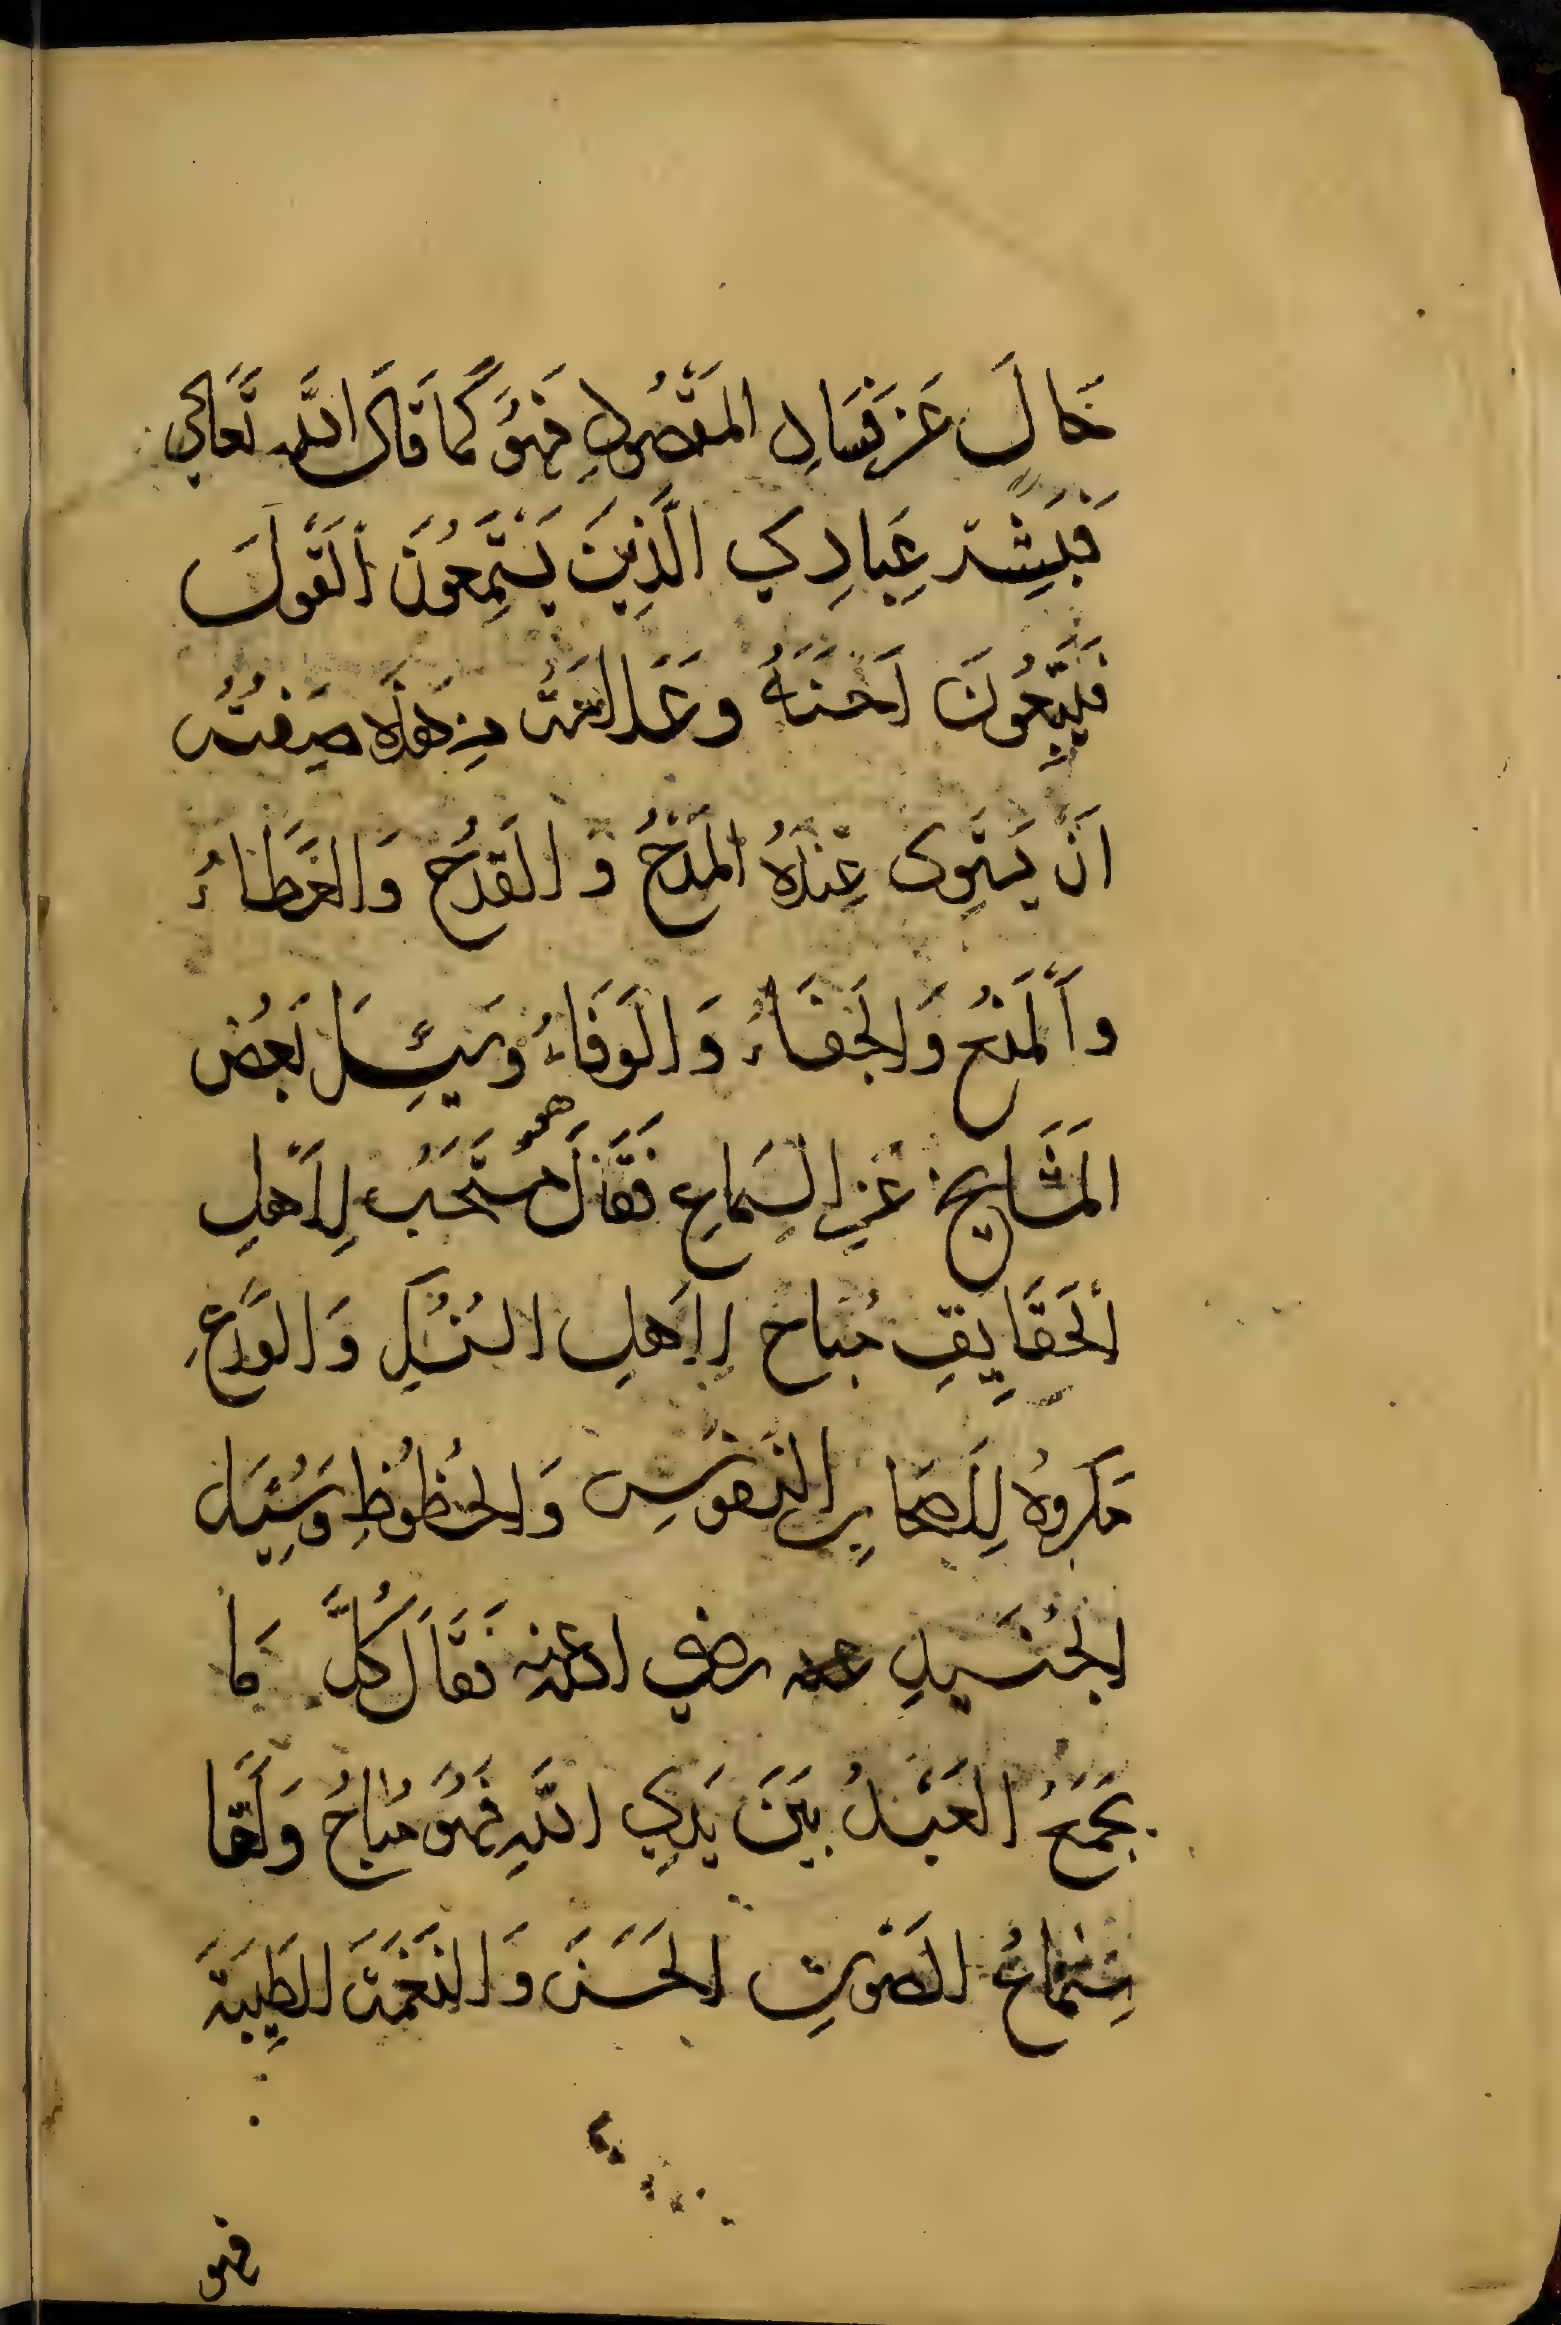 خَالَ عَنْ فَسَادِ المَقْصُودِ فَهُوَ كَمَا قَالَ اللّٰه تَعَالَى
فَبَشِّرْ عِبَادِي الَّذِينَ يَسْتَمِعُونَ اَلْقَولَ
فَيَتَّبِعُونَ اَحْسَنَهُ وَعَلَامَتُ مِنْ هٰذِهِ صِفَتُهُ
اَنْ يَسْتَوِى عِنْدَهُ المَدْحُ وَ القَدْحُ وَالعَطَاءُ
وَاَلمَنْعُ وَالجَفَاءُ وَالوَفَاءُ وَسُئِلَ بَعْضُ
المَشَايِخِ عَنِ السَمَاعِ فَقَالَ هو مُسْتَحَبٌ لِاَهْلِ
اَلحَقَايِقِ مُبَاحٌ لِاَهْلِ النُسُكِ وَالوَرَعِ
مَكْرُوهٌ لِاَصْحَابِ النُفُوسِ وَالحُظُوظِ وَسُئِلَ
الجُنَيْدِ رضي الله عنه فَقَالَ كُلَّ مَا
يَجْمَعُ العَبْدُ بَيْنَ يَدَيِ اللّٰهِ فَهُوَ مُبَاحٌ وَاَمَّا
سِتْمَاعُ الصَوْتِ الحَسَنَ وَالنَغْمَةَ الطَيِّبَةَ
فهو